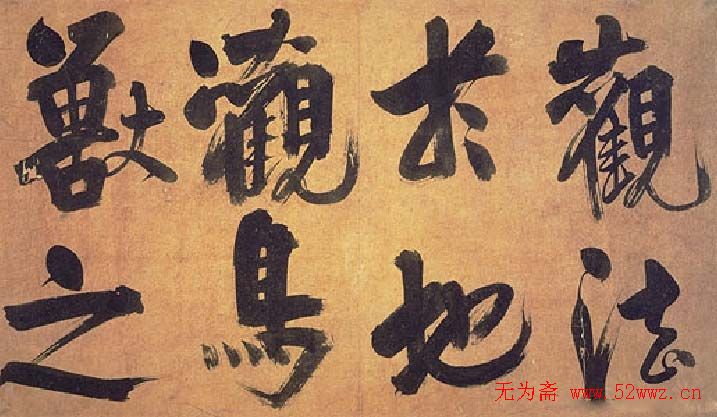 觀法
於地
觀鳥
獸之
无为斋 www.52wwz.cn